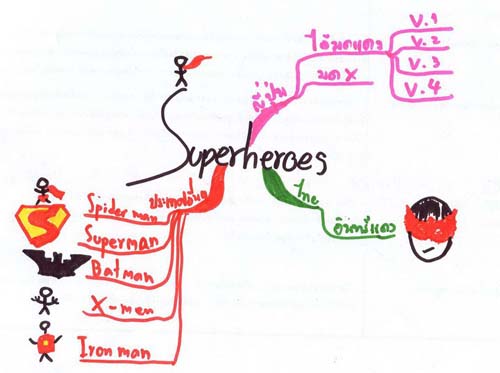 Superheroes
ญี่ปุ่น
ไอ้มดแดง
V.1
V.2
V.3
V.4
มด X
ไทย
อินทรีแดง
ประเทศอื่น
Spider man
S
Superman
Batman
X-men
Iron man